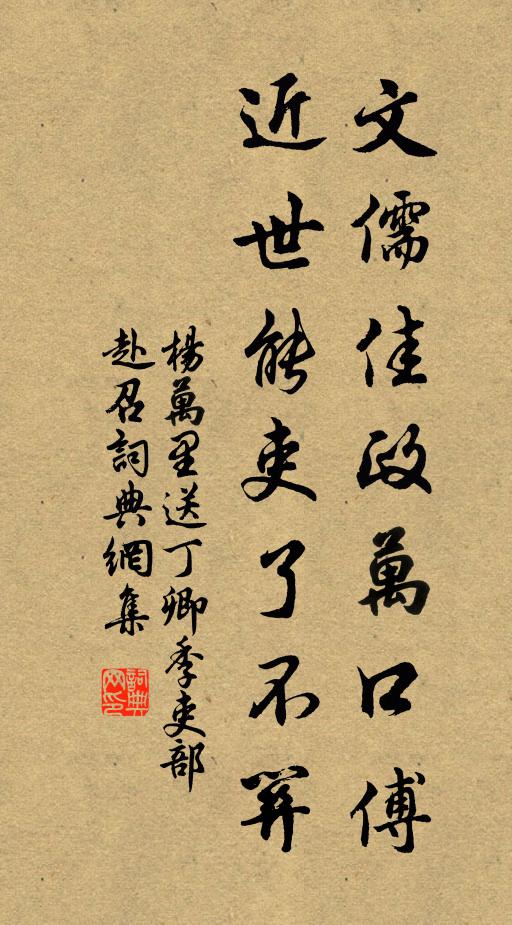 文儒佳政萬口傅
近世能吏了不
楊萬里送丁卿季吏部
赴召詞典網集
詞典
网印